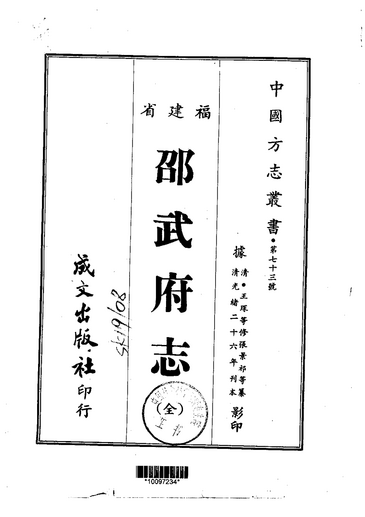 中國方志叢書・第七十三號
據
清・王琛等修張景祁等纂
清光緒二十六年刊本
影印
福建省
邵武府志
(全)
成文出版社印行
SK19/08
*10097234*